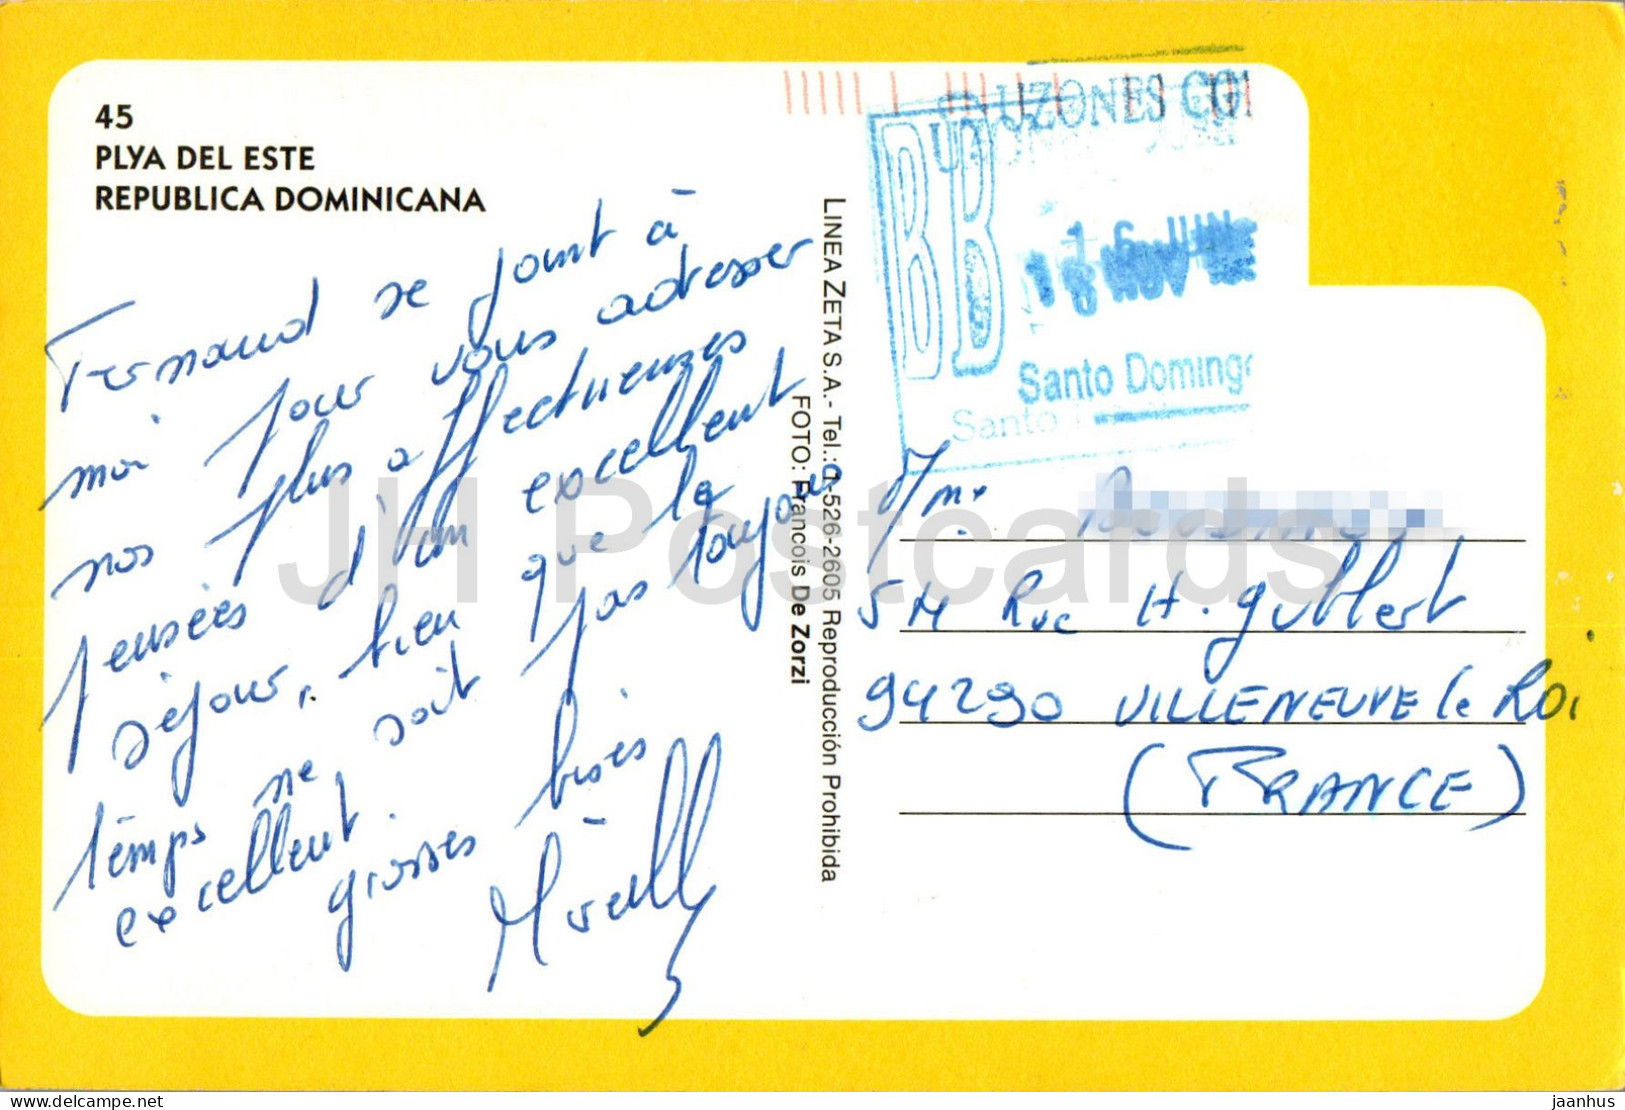 45
PLYA DEL ESTE
REPUBLICA DOMINICANA
Fernand se joint à
moi pour vous adresser
nos plus affectueuses
pensées d'un excellent
séjour, bien que le
temps ne soit pas toujours
excellent.
grosses bises
Mireille
LINEA ZETA S.A.- Tel.: 526-2605 Reproducción Prohibida
FOTO: Francois De Zorzi
BUZONES
BB
16 JUN
Santo Domingo
Santo
Mme
94290 VILLENEUVE le ROI
(FRANCE)
JH Postcards
delcampe.net
jaanhus